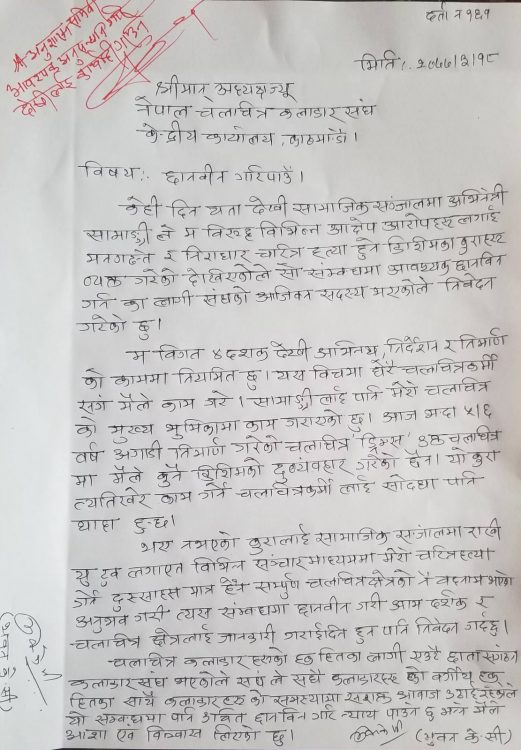 दर्ता नं १६१
अनुशासन समिति
आवश्यक
मिति : २०७७/३/१८
श्रीमान् अध्यक्षज्यू
नेपाल चलचित्र कलाकार संघ
केन्द्रीय कार्यालय, काठमाडौं ।
विषय:- छानवीन गरिपाउँ ।
केही दिन यता देखी सामाजिक सञ्जालमा अभिनेत्री
साम्राज्ञी ले म विरुद्ध विभिन्न आक्षेप आरोपहरु लगाई
मनगढन्ते र निराधार चरित्र हत्या हुने किसिमका कुराहरु
व्यक्त गरेको देखिएकोले सो सम्बन्धमा आवश्यक छानविन
गर्न का लागी संघको आजिवन सदस्य भएकोले निवेदन
गरेको छु ।
म विगत ४ दशक देखी अभिनय, निर्देशन र निर्माण
को काममा नियमित छु । यस विचमा धेरै चलचित्रकर्मी
संग मैले काम गरे । साम्राज्ञी लाई पनि मेरो चलचित्र
को मुख्य भुमिकामा काम गराएको छु । आज भन्दा ५/६
वर्ष अगाडी निर्माण गरेको चलचित्र 'ड्रिम्स' चलचित्र
मा मैले कुनै किसिमको दुर्व्यवहार गरेको छैन । यो कुरा
त्यतिखेर काम गर्ने चलचित्रकर्मी लाई सोद्धा पनि
थाहा हुन्छ ।
भए नभएको कुरालाई सामाजिक सञ्जालमा राखी
यु टुव लगाएत विभिन्न सञ्चार माध्यममा मेरो चरित्रहत्या
गर्ने दुस्साहस मात्र हैन सम्पुर्ण चलचित्र क्षेत्रको नै वदनाम भएको
अनुभव गरी त्यस सम्बन्धमा छानवीन गरी आम दर्शक र
चलचित्र क्षेत्रलाई जानकारी गराईदिन हुन पनि निवेदन गर्दछु ।
चलचित्र कलाकार हरुको हक हितका लागी एउटै छाता संगठन
कलाकार संघ भएकोले संघ ले सधै कलाकारहरु को वर्गीय हक
हितका साथै कलाकार हरु को समस्यामा सशक्त आवाज उठाई रहेकोले
यो सम्बन्धमा पनि उचित छानविन गरि न्याय पाउने छु भन्ने मैले
आशा एवं विश्वास लिएको छु ।
(भुवन के.सी)